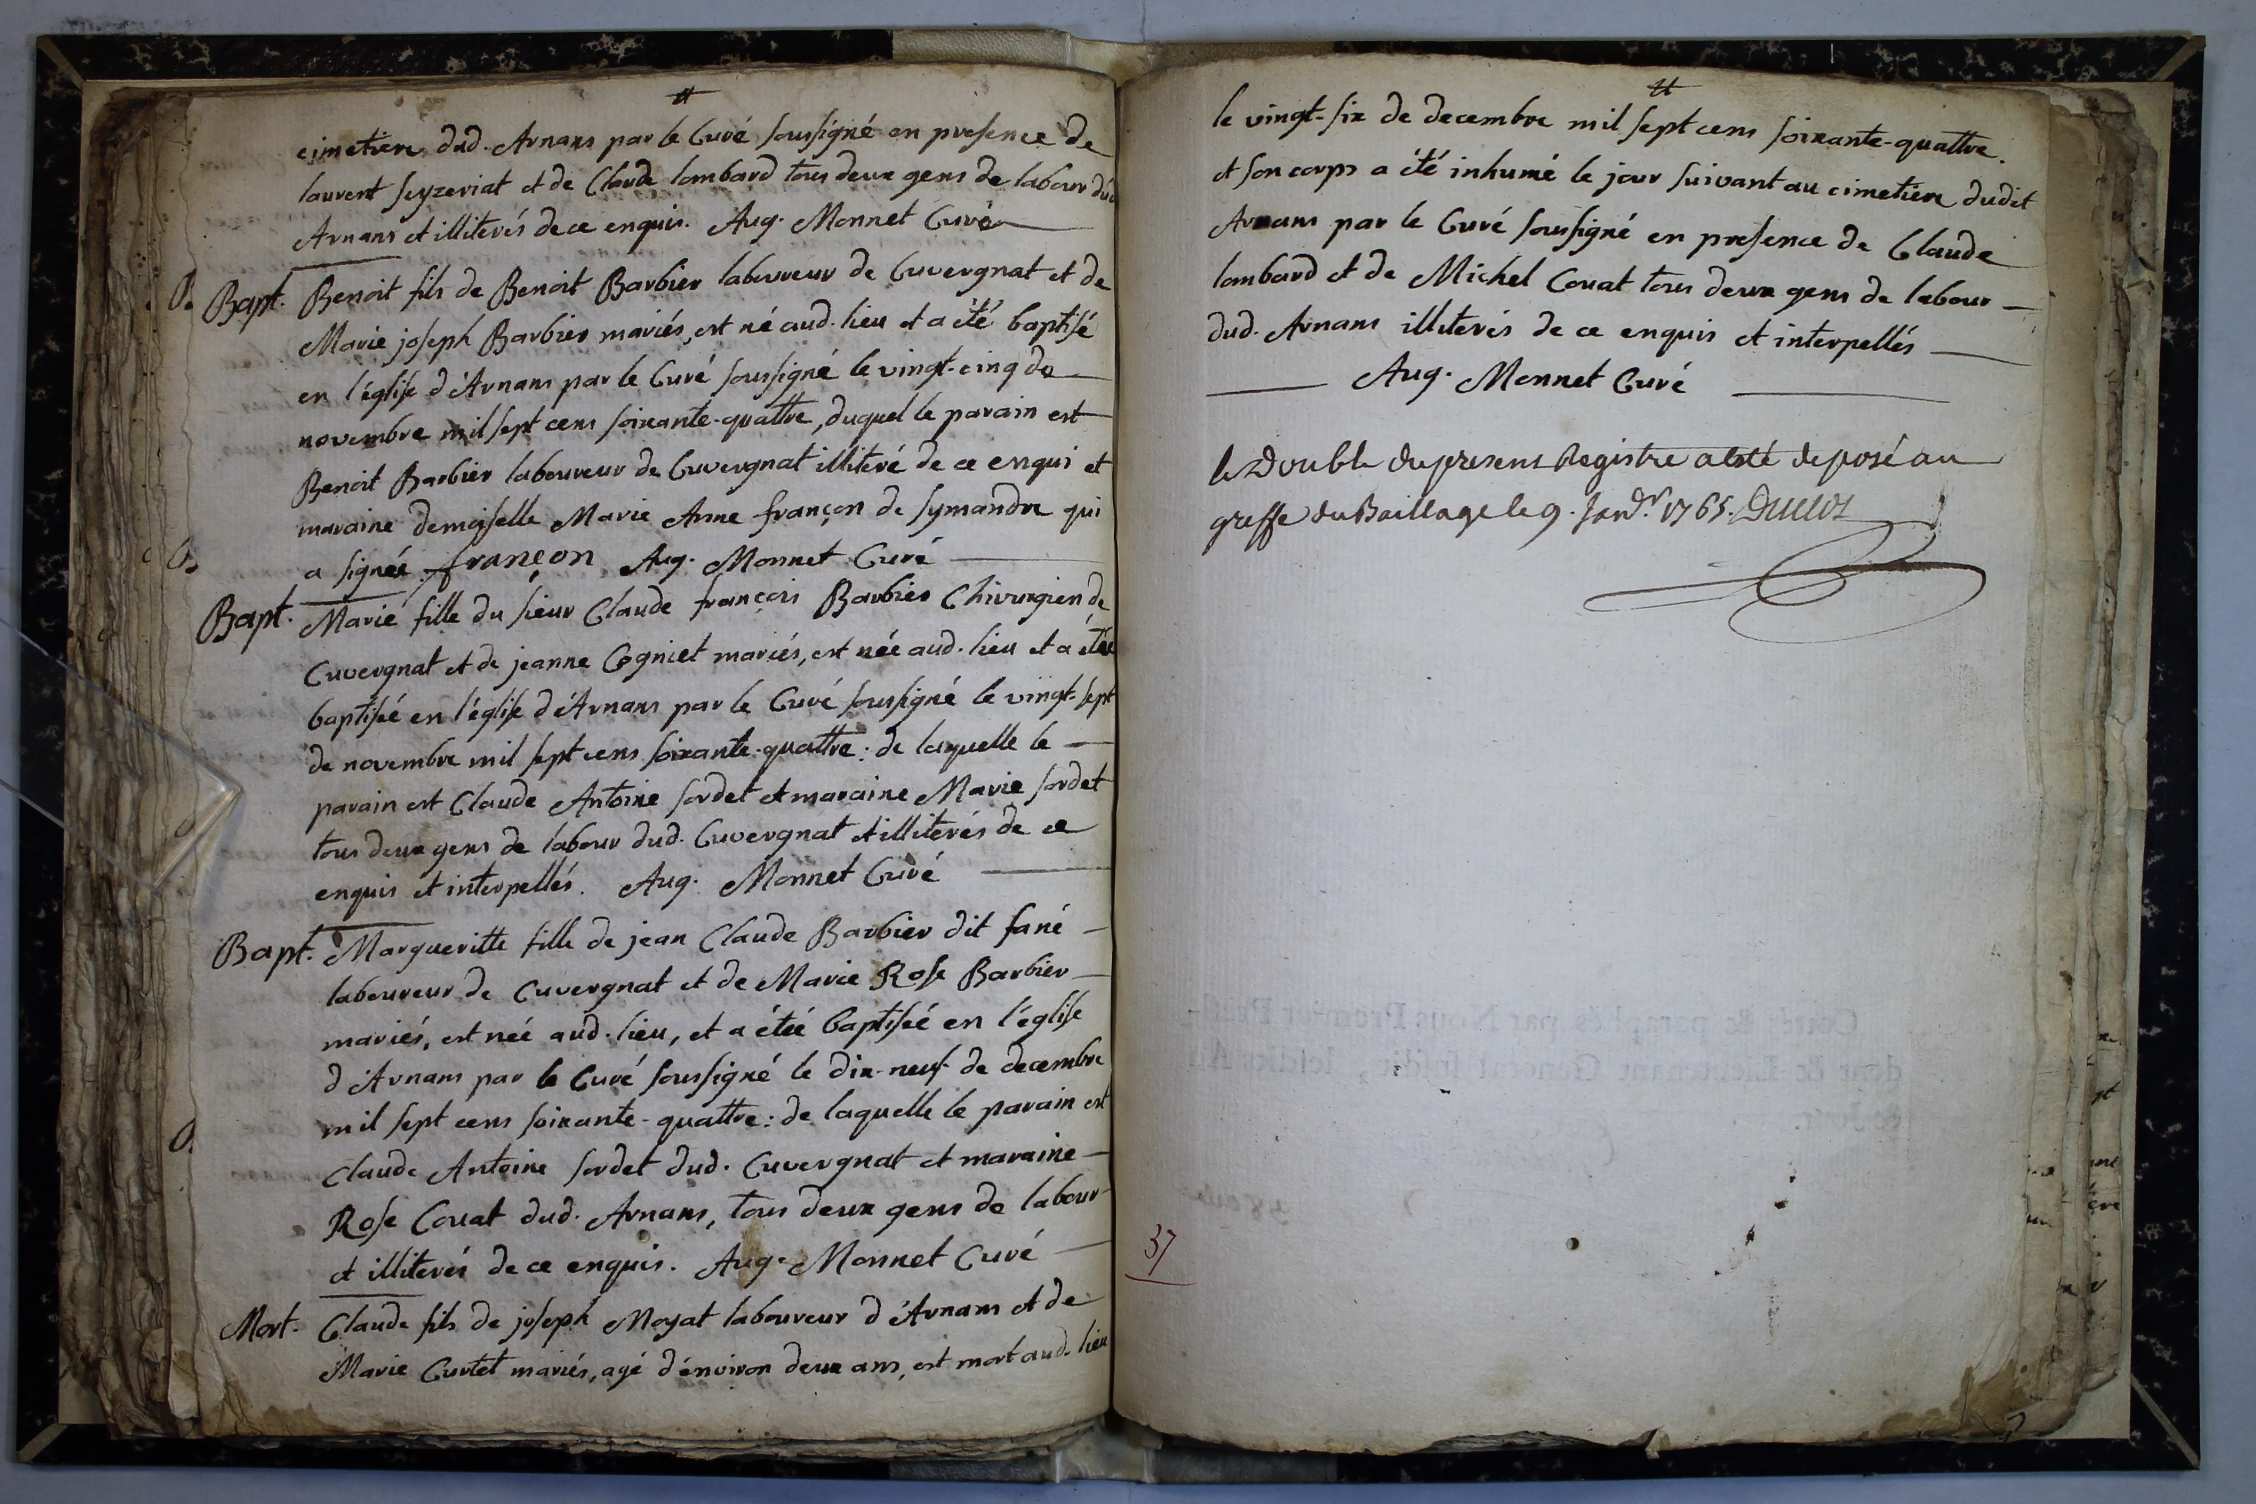 cimetiere dud. Arnans par le Curé soussigné en presence de
laurent seyzeriat et de Claude lombard tous deux gens de labour dud
Arnans et illiterés de ce enquis. Aug. Monnet Curé
Bapt. Benoit fils de Benoit Barbier laboureur de Cuvergnat et de
Marie joseph Barbier mariés, est né aud. lieu et a été baptisé
en l'église d'Arnans par le Curé soussigné le vingt-cinq de
novembre mil sept cens soixante-quattre, duquel le parain est
Benoit Barbier laboureur de Cuvergnat illiteré de ce enqui et
maraine demoiselle Marie Anne françon de Symandre qui
a signée. françon Aug. Monnet Curé
Bapt. Marie fille du sieur Claude françois Barbier Chirurgien de
Cuvergnat et de jeanne Cogniet mariés, est née aud. lieu et a étée
baptisée en l'église d'Arnans par le Curé soussigné le vingt-sept
de novembre mil sept cens soixante-quattre: de laquelle le
parain est Claude Antoine sordet et maraine Marie sordet
tous deux gens de labour dud. Cuvergnat et illiterés de ce
enquis et interpellés. Aug. Monnet Curé
Bapt. Margueritte fille de jean Claude Barbier dit fané
laboureur de Cuvergnat et de Marie Rose Barbier
mariés, est née aud. lieu, et a étéé baptisée en l'église
d'Arnans par le Curé soussigné le dix-neuf de decembre
mil sept cens soixante-quattre: de laquelle le parain est
Claude Antoine sordet dud. Cuvergnat et maraine
Rose Couat dud. Arnans, tous deux gens de labour
et illiterés de ce enquis. Aug. Monnet Curé
Mort. Claude fils de joseph Moyat laboureur d'Arnans et de
Marie Curtet mariés, agé d'énviron deux ans, est mort aud. lieu
le vingt-six de decembre mil sept cens soixante-quattre.
et son corps a été inhumé le jour suivant au cimetiere dudit
Arnans par le Curé soussigné en presence de Claude
lombard et de Michel Couat tous deux gens de labour
dud. Arnans illiterés de ce enquis et interpellés
Aug. Monnet Curé
le double du present Registre a esté deposé au
greffe du Baillage le 9. Janv.r 1765. Duclos
37